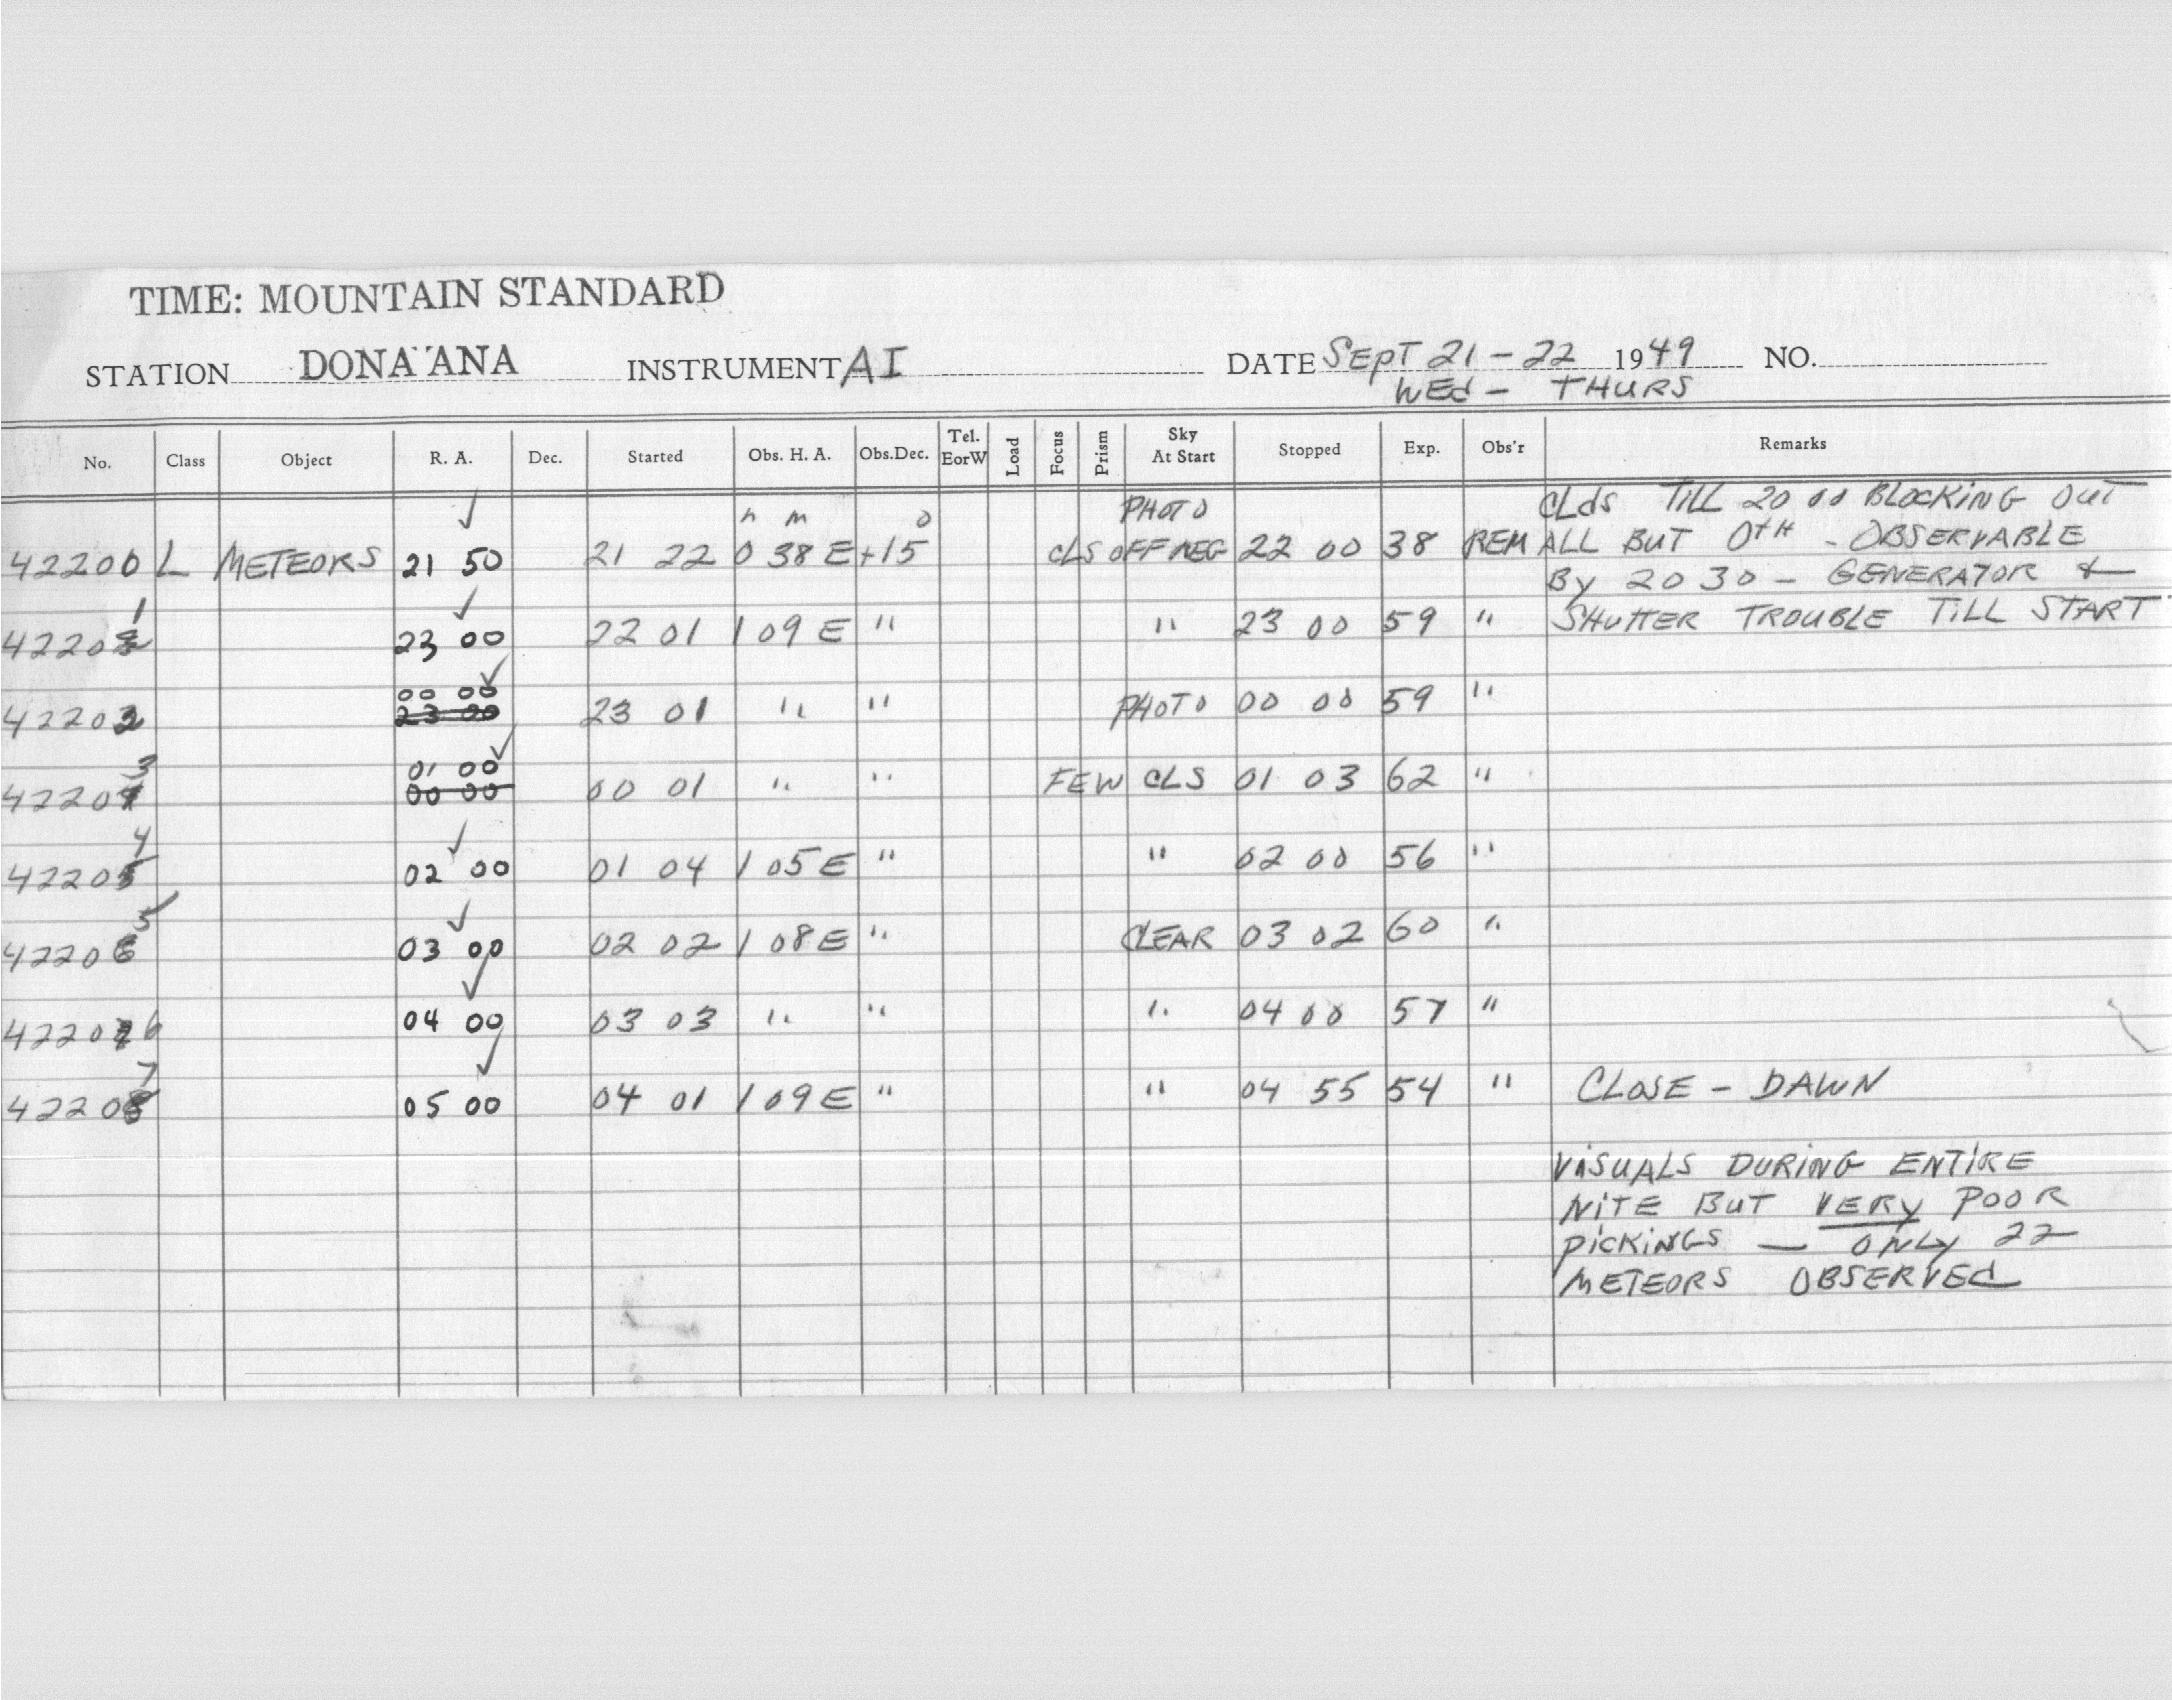 TIME: MOUNTAIN STANDARD
STATION DONA ANA INSTRUMENT AI DATE SEPT 21 - 22 1949 NO.
WEd - THURS
No. Class Object R. A. Dec. Started Obs. H. A. Obs.Dec. Tel. EorW Load Focus Prism Sky At Start Stopped Exp. Obs'r Remarks
CLdS TILL 20 00 BLOCKING OUT
h m o PHOTO
42200 L METEORS 21 50 21 22 0 38 E +15 CLS OFF MEG 22 00 38 REM ALL BUT 0TH - OBSERVABLE
BY 20 30 - GENERATOR &
42201 23 00 22 01 1 09 E " " 23 00 59 " SHUTTER TROUBLE TILL START
00 00
42202 23 00 23 01 " " PHOTO 00 00 59 "
01 00
42203 00 00 00 01 " " FEW CLS 01 03 62 "
42204 02 00 01 04 1 05 E " " 02 00 56 "
42205 03 00 02 02 1 08 E " CLEAR 03 02 60 "
42206 04 00 03 03 " " " 04 00 57 "
42207 05 00 04 01 1 09 E " " 04 55 54 " CLOSE - DAWN
VISUALS DURING ENTIRE
NITE BUT VERY POOR
PICKINGS — ONLY 22
METEORS OBSERVEd